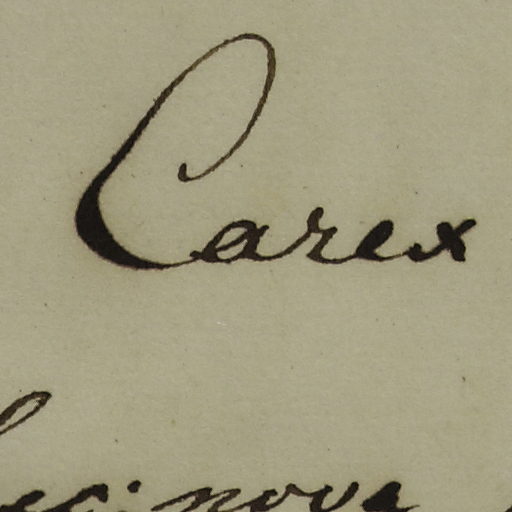 Carex
nova